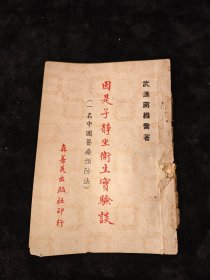 武進蔣維喬著
因是子靜坐衛生實驗談
(一名中國醫療預防法)
森善長出版社印行